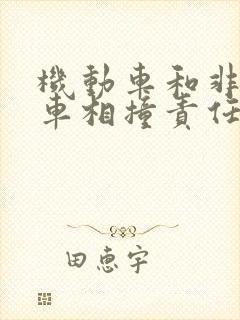 機動車和非
車相撞責任
田惠宇